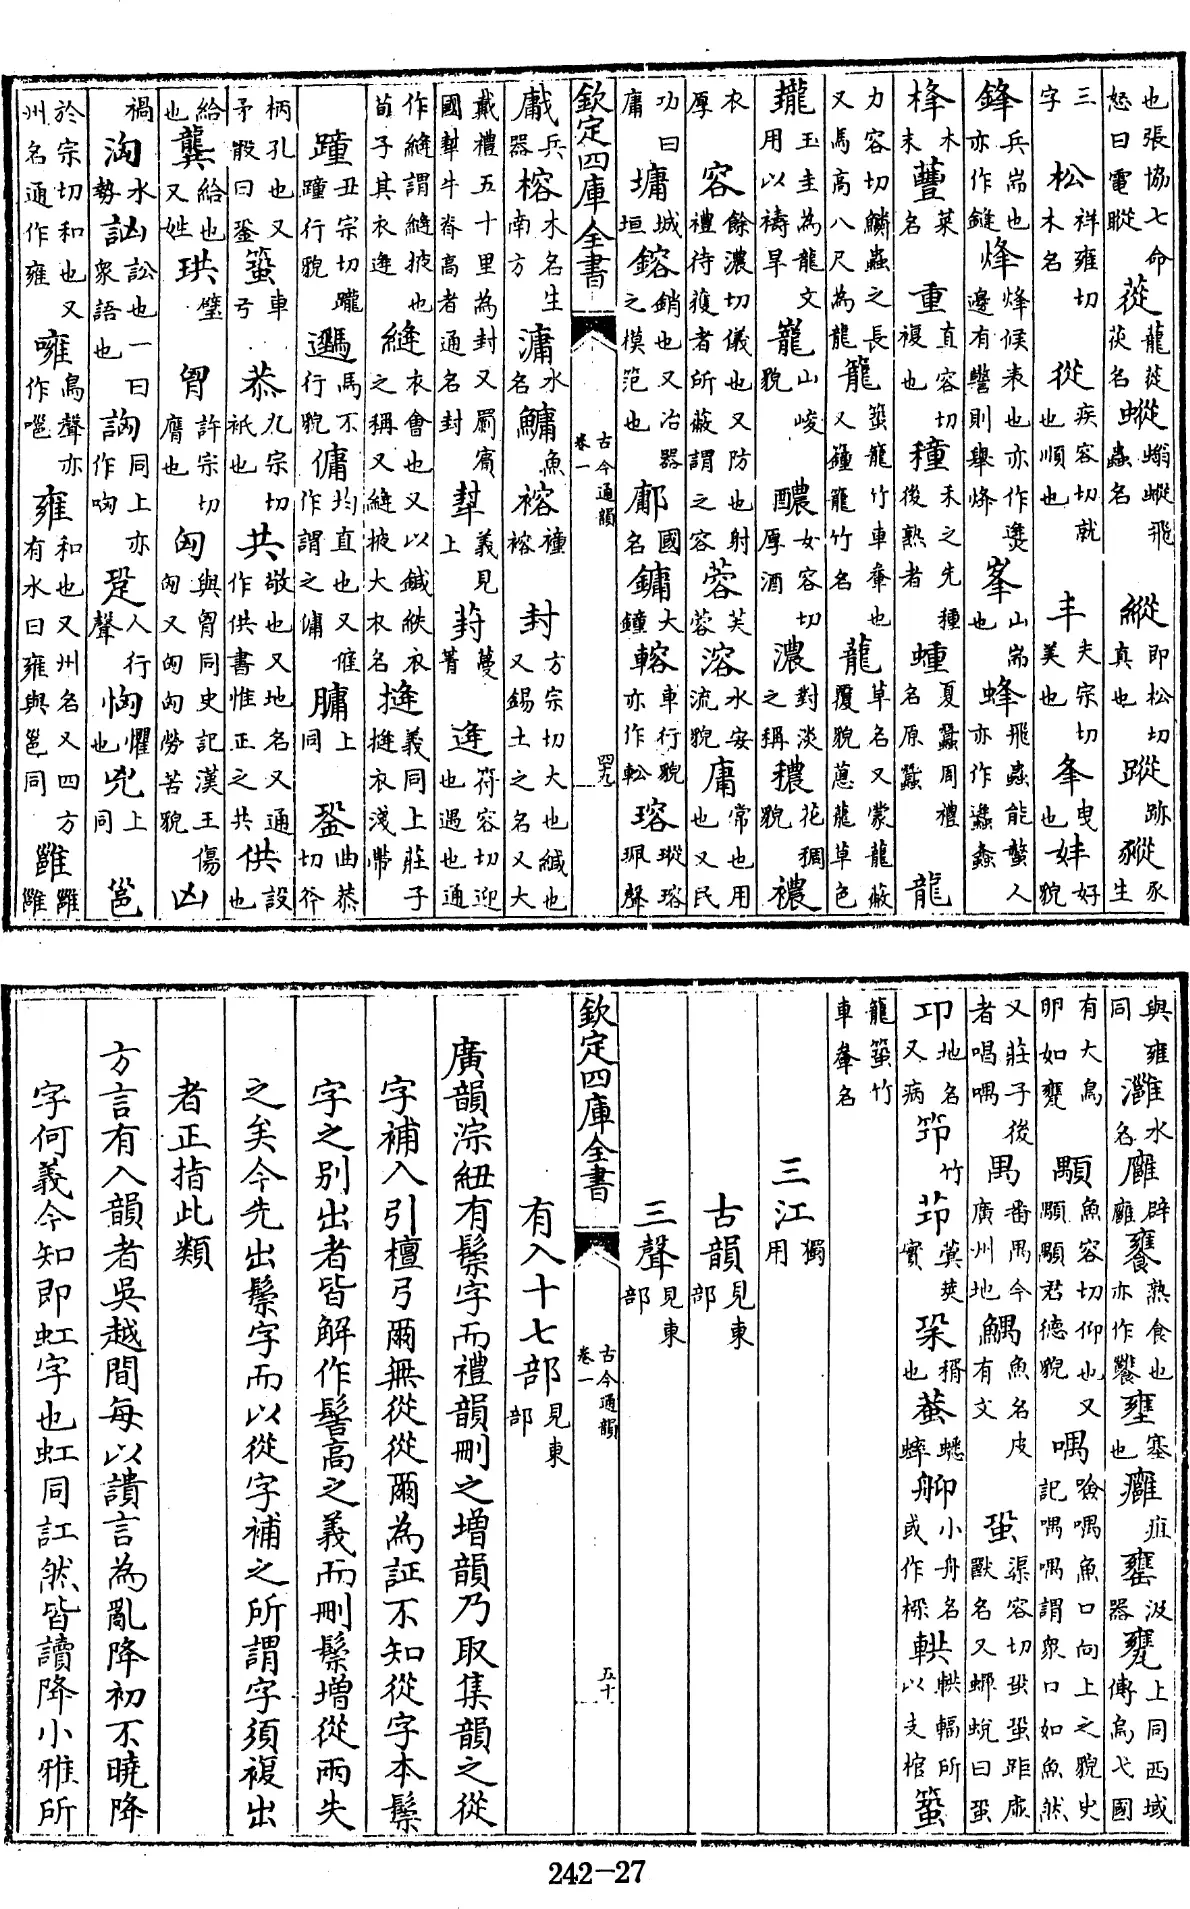 也張協七命怒曰電瞛蓯龍蓯茯名䗥螉䗥飛蟲名縱即松切真也蹤跡豵豕生
三字松祥雍切木名從疾容切就也順也丰夫宗切美也夆曳也妦好貌
鋒兵耑也亦作鏠烽烽候表也亦作㷭邊有警則舉烽峯山耑也蜂飛蟲能螫人亦作蠭䗬
桻木末蘴菜名重直容切複也種禾之先種後熟者蝩夏蠶周禮名原蠶龍
力容切鱗蟲之長又馬高八尺為龍籠蛩籠竹車軬也又鐘籠竹名蘢草名又蒙蘢蔽覆貌蔥蘢草色
瓏玉圭為龍文用以禱旱巃山峻貌醲女容切厚酒濃對淡之稱穠花稠貌襛
衣厚容餘濃切儀也又防也射禮待獲者所蔽謂之容蓉芙蓉溶水安流貌庸常也用也又民
功曰庸墉城垣鎔銷也又冶器之模笵也鄘國名鏞大鐘輍車行貌亦作䡆瑢瑽瑢珮聲
欽定四庫全書 古今通韻卷一 四九
兵器榕木名生南方滽水名鱅魚褣䄖褣封方宗切大也緘也又錫土之名又大
戴禮五十里為封又罽賓國犎牛脊高者通名封犎義見上葑蔓菁逢符容切迎也遇也通
作縫謂縫掖也荀子其衣逢縫衣會也又以鍼紩衣之稱又縫掖大衣名摓義同上莊子摓衣淺帶
蹱丑宗切躘蹱行貌馬不行貌傭均直也又僱作謂之傭上同銎曲恭切斧
柄孔也又矛骹曰銎蛩車弓恭九宗切祇也共敬也又地名又通作供書惟正之共供設也
給也龔給也又姓珙璧胷許宗切膺也匈與胷同史記漢王傷匈又匈匈勞苦貌凶
禍洶水勢訩訟也一曰衆語也訽同上亦作哅跫人行聲恟懼也兇上同邕
於宗切和也又州名通作雍噰鳥聲亦作嗈雍和也又州名又四方有水曰雍與邕同雝雝雝
與雍同灉水名廱辟廱饔熟食也亦作饔壅塞也癰疽罋汲器甕上同西域傳烏弋國
有大鳥卵如甕顒魚容切仰也又顒顒君德貌喁噞喁魚口向上之貌史記喁喁謂衆口如魚然
又莊子後者唱喁禺番禺今廣州地鰅魚名皮有文蛩渠容切蛩蛩距虛獸名又螂蛻曰蛩
邛地名又病筇竹茚蓂莢實桏稰也蛬蟋蟀舼小舟名或作樑輁輁輻所以支棺蛩
籠蛩竹車軬名
三江獨用
古韻見東部
三聲見東部
欽定四庫全書 古今通韻卷一 五十
有入十七部見東部
廣韻淙紐有鬃字而禮韻刪之增韻乃取集韻之從
字補入引檀弓爾無從從爾為証不知從字本鬃
字之別出者皆解作髻高之義而刪鬃增從兩失
之矣今先出鬃字而以從字補之所謂字須複出
者正指此類
方言有入韻者吳越間每以讀言為亂降初不曉降
字何義今知即虹字也虹同訌然皆讀降小雅所
242-27